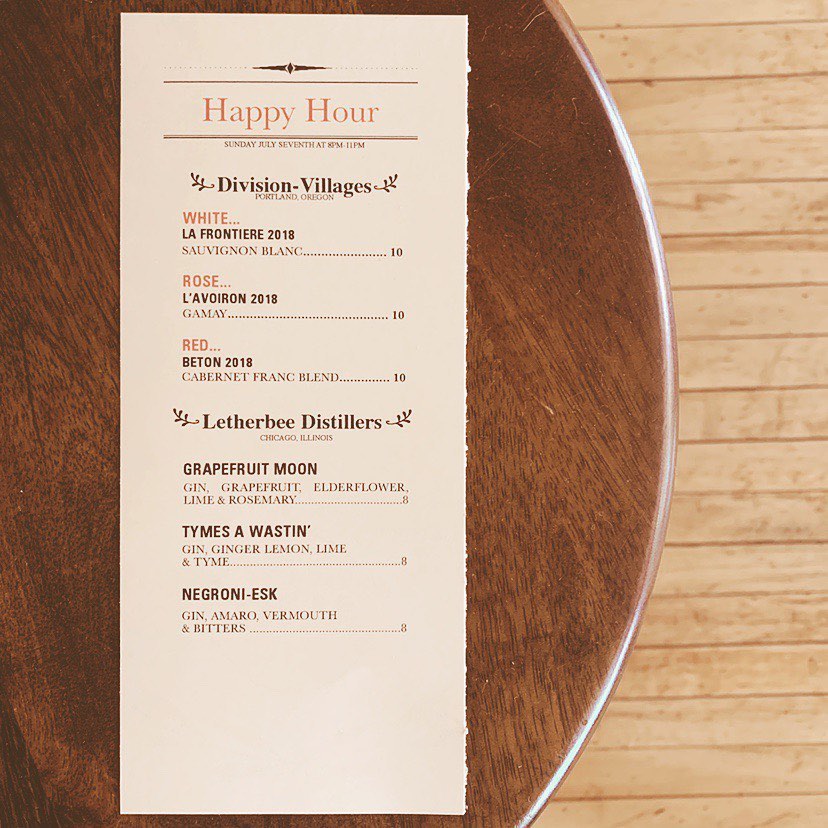 Happy Hour
SUNDAY JULY SEVENTH AT 8PM-11PM
Division-Villages
PORTLAND, OREGON
WHITE...
LA FRONTIERE 2018
SAUVIGNON BLANC....................... 10
ROSE...
L'AVOIRON 2018
GAMAY............................................ 10
RED...
BETON 2018
CABERNET FRANC BLEND.............. 10
Letherbee Distillers
CHICAGO, ILLINOIS
GRAPEFRUIT MOON
GIN, GRAPEFRUIT, ELDERFLOWER,
LIME & ROSEMARY..............................8
TYMES A WASTIN'
GIN, GINGER LEMON, LIME
& TYME................................................8
NEGRONI-ESK
GIN, AMARO, VERMOUTH
& BITTERS ...........................................8